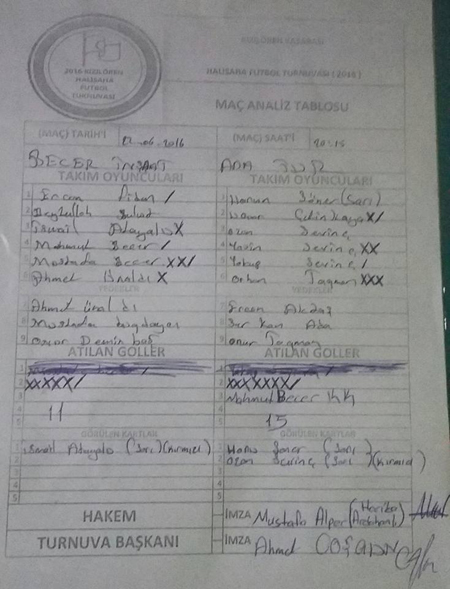 2016 KIZILÖREN
HALISAHA
FUTBOL
TURNUVASI
KIZILÖREN KASABASI
HALISAHA FUTBOL TURNUVASI ( 2016 )
MAÇ ANALİZ TABLOSU
(MAÇ) TARİH'İ
06-2016
(MAÇ) SAAT'İ
20:15
BECER İNŞAAT
ADA TUR
TAKIM OYUNCULARI
TAKIM OYUNCULARI
1 Ercan /
1 Harun Döner (Sarı)
2 Beytullah
2 Hasan Çetinkaya X/
3 İsmail X
3 Ozan Sevinç
4 Mahmut Becer /
4 Yasin Sevinç XX
5 Mustafa Becer XX/
5 Yakup Sevinç /
6 Ahmet Ünaldı X
6 Orhan Taqman XXX
YEDEKLER
YEDEKLER
7 Ahmet Ünaldı
7 Ercan Akdağ
8 Mustafa
8 Serkan Ada
9 Onur Demirbaş
9 Onur Taqman
ATILAN GOLLER
ATILAN GOLLER
1
1
2 XXXXX/
2 XXXXXXX/
3
3 Mahmut Becer KK
4 11
4
5
5 15
GÖRÜLEN KARTLAR
GÖRÜLEN KARTLAR
1 İsmail (Sarı)(Kırmızı)
1 Harun Döner (Sarı)
2
2 Ozan Sevinç (Sarı)(Kırmızı)
3
3
4
4
5
5
HAKEM
İMZA Mustafa Alper
TURNUVA BAŞKANI
İMZA Ahmet DOĞAN